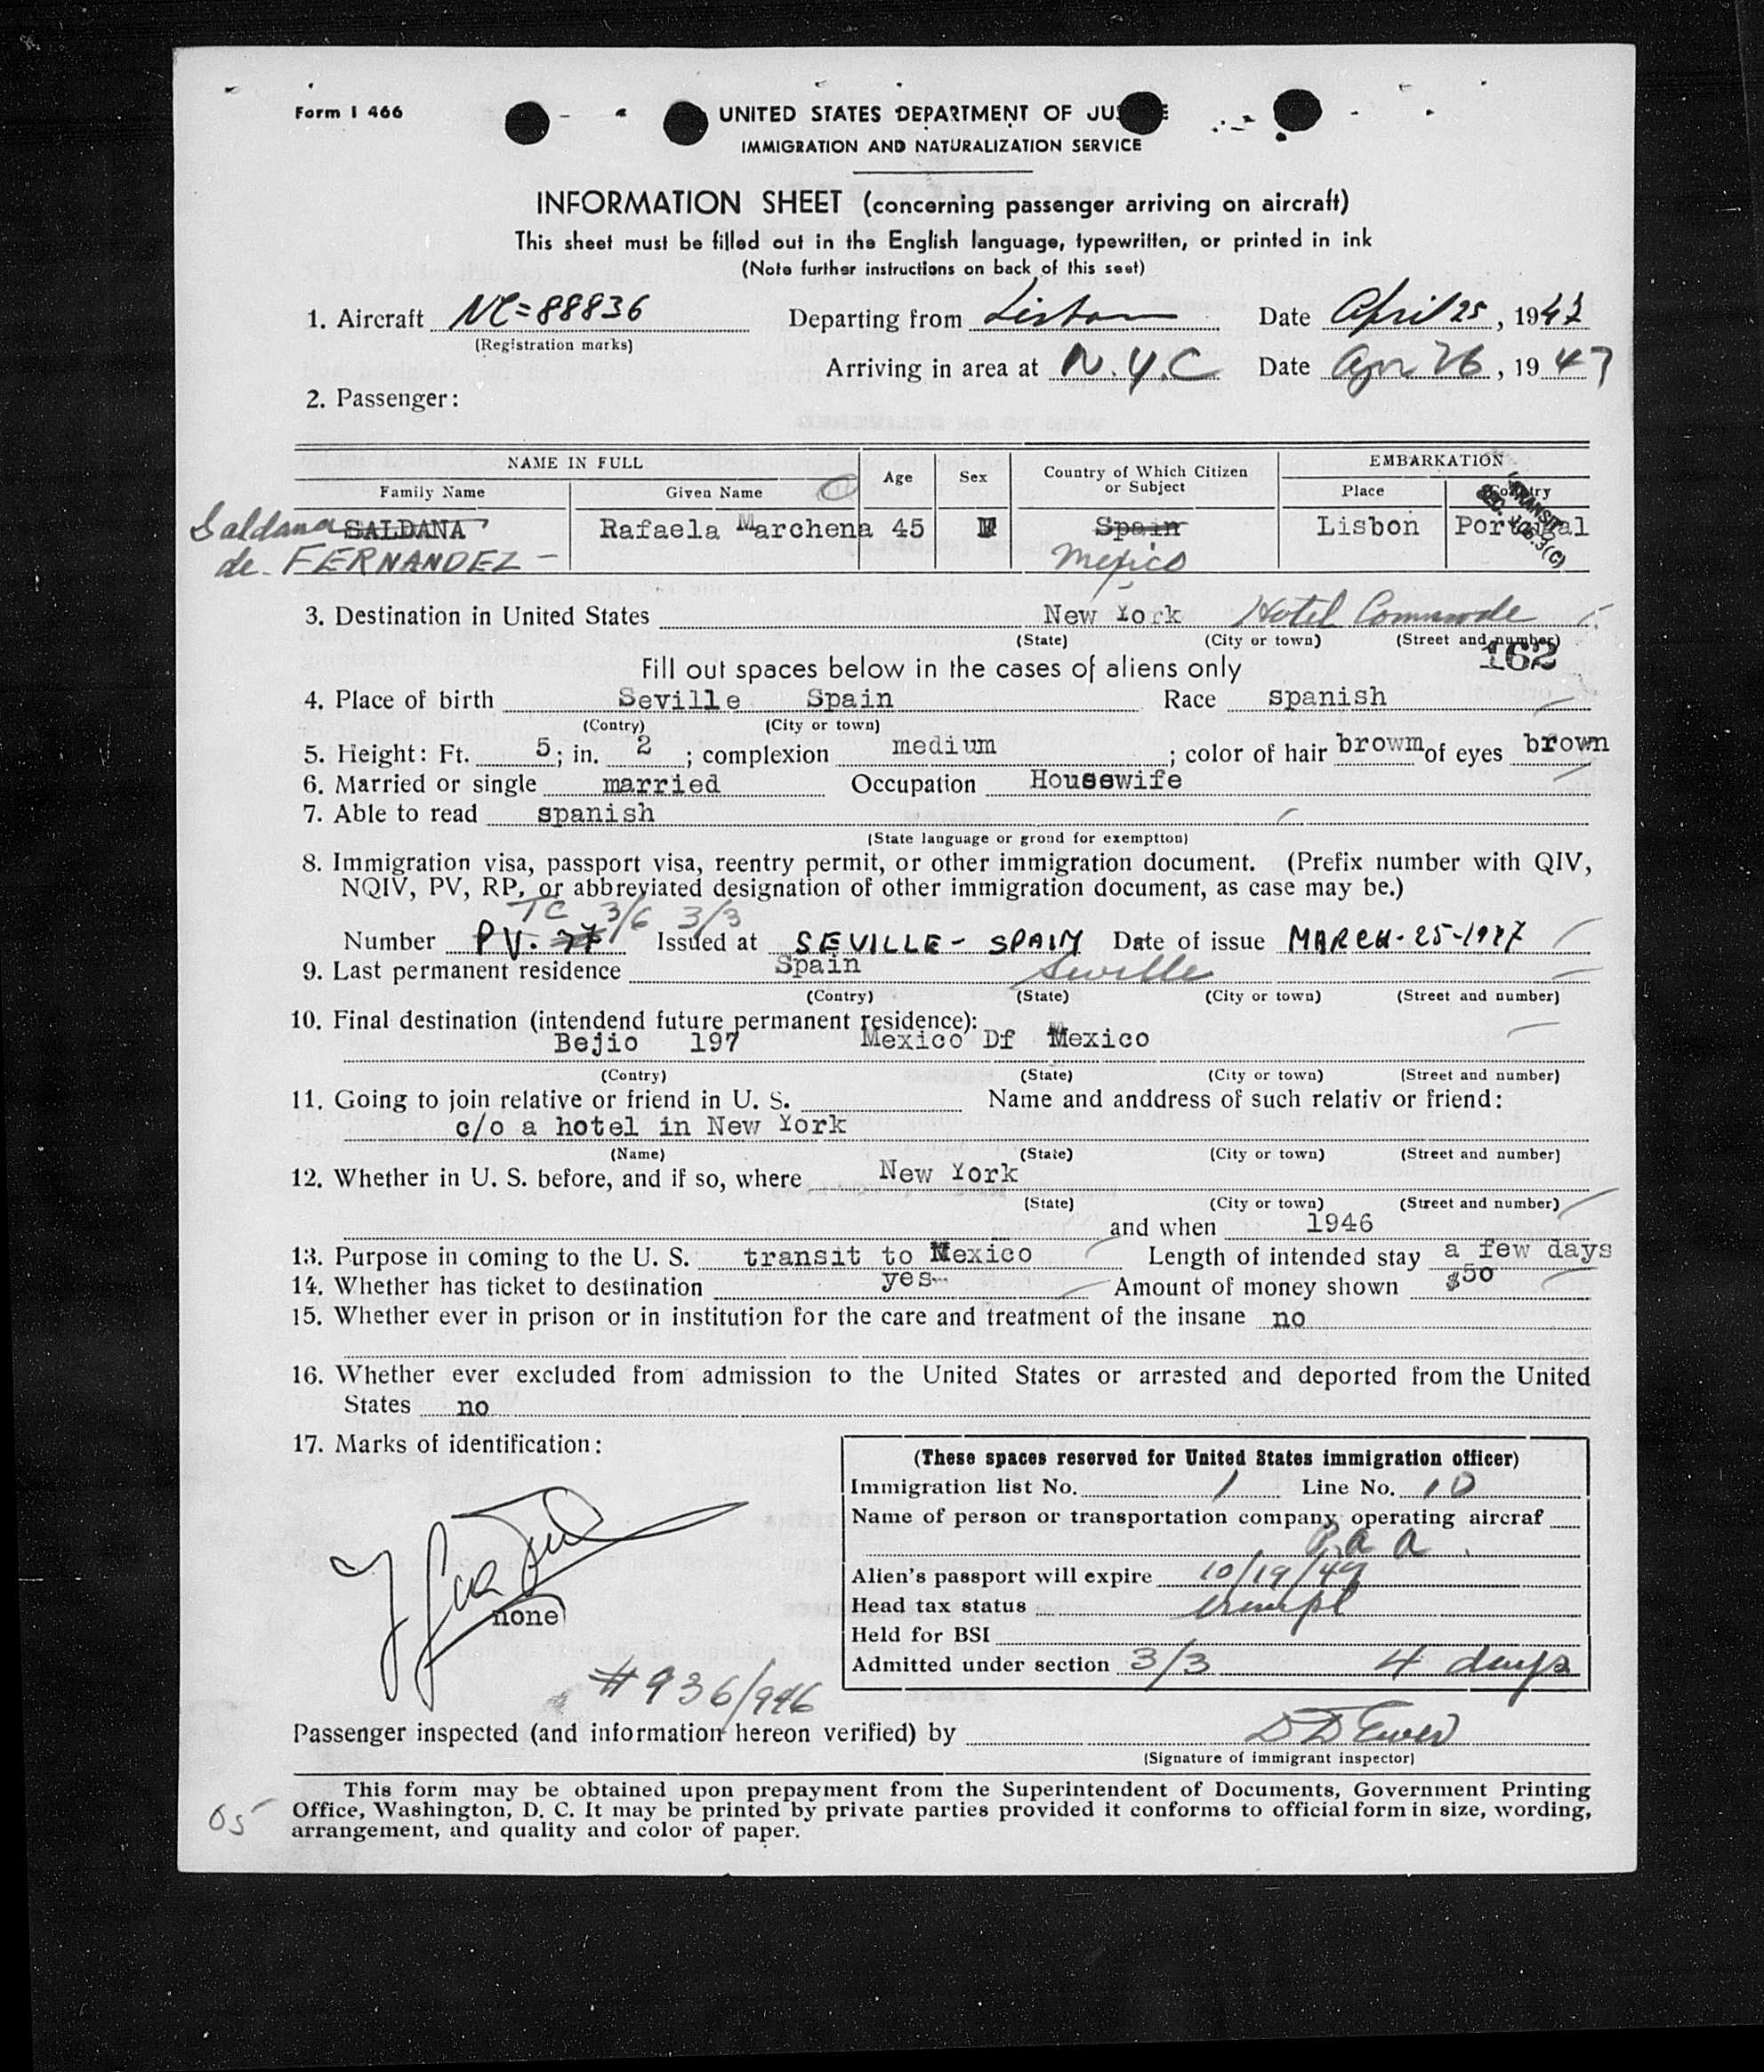 Form I 466
UNITED STATES DEPARTMENT OF JU E
IMMIGRATION AND NATURALIZATION SERVICE
INFORMATION SHEET (concerning passenger arriving on aircraft)
This sheet must be filled out in the English language, typewritten, or printed in ink
(Note further instructions on back of this seet)
1. Aircraft NC=88836 Departing from Lisbon Date April 25, 1947
(Registration marks)
Arriving in area at N.Y.C Date Apr 26, 1947
2. Passenger:
NAME IN FULL Age Sex Country of Which Citizen or Subject EMBARKATION
Family Name Given Name Place Country
Saldana SALDANA Rafaela Marchena 45 F Spain Lisbon Portugal
de FERNANDEZ - Mexico
TRANSIT
SEC. 106.3(C)
3. Destination in United States New York Hotel Commode
(State) (City or town) (Street and number)
162
Fill out spaces below in the cases of aliens only
4. Place of birth Seville Spain Race spanish
(Contry) (City or town)
5. Height: Ft. 5; in. 2; complexion medium; color of hair browm of eyes brown
6. Married or single married Occupation Housewife
7. Able to read spanish
(State language or grond for exemptton)
8. Immigration visa, passport visa, reentry permit, or other immigration document. (Prefix number with QIV,
NQIV, PV, RP, or abbreviated designation of other immigration document, as case may be.)
TC 3/6 3/3
Number PV. 37 Issued at SEVILLE - SPAIN Date of issue MARCH-25-1947
9. Last permanent residence Spain Seville
(Contry) (State) (City or town) (Street and number)
10. Final destination (intendend future permanent residence):
Bejio 197 Mexico Df Mexico
(Contry) (State) (City or town) (Street and number)
11. Going to join relative or friend in U. S. Name and anddress of such relativ or friend:
c/o a hotel in New York
(Name) (State) (City or town) (Street and number)
12. Whether in U. S. before, and if so, where New York
(State) (City or town) (Street and number)
and when 1946
13. Purpose in coming to the U. S. transit to Mexico Length of intended stay a few days
14. Whether has ticket to destination yes Amount of money shown $50
15. Whether ever in prison or in institution for the care and treatment of the insane no
16. Whether ever excluded from admission to the United States or arrested and deported from the United
States no
17. Marks of identification:
none
#936/946
(These spaces reserved for United States immigration officer)
Immigration list No. 1 Line No. 10
Name of person or transportation company operating aircraf
P a a
Alien's passport will expire 10/19/49
Head tax status exempt
Held for BSI
Admitted under section 3/3 4 days
Passenger inspected (and information hereon verified) by D D Ewer
(Signature of immigrant inspector)
This form may be obtained upon prepayment from the Superintendent of Documents, Government Printing
Office, Washington, D. C. It may be printed by private parties provided it conforms to official form in size, wording,
arrangement, and quality and color of paper.
05